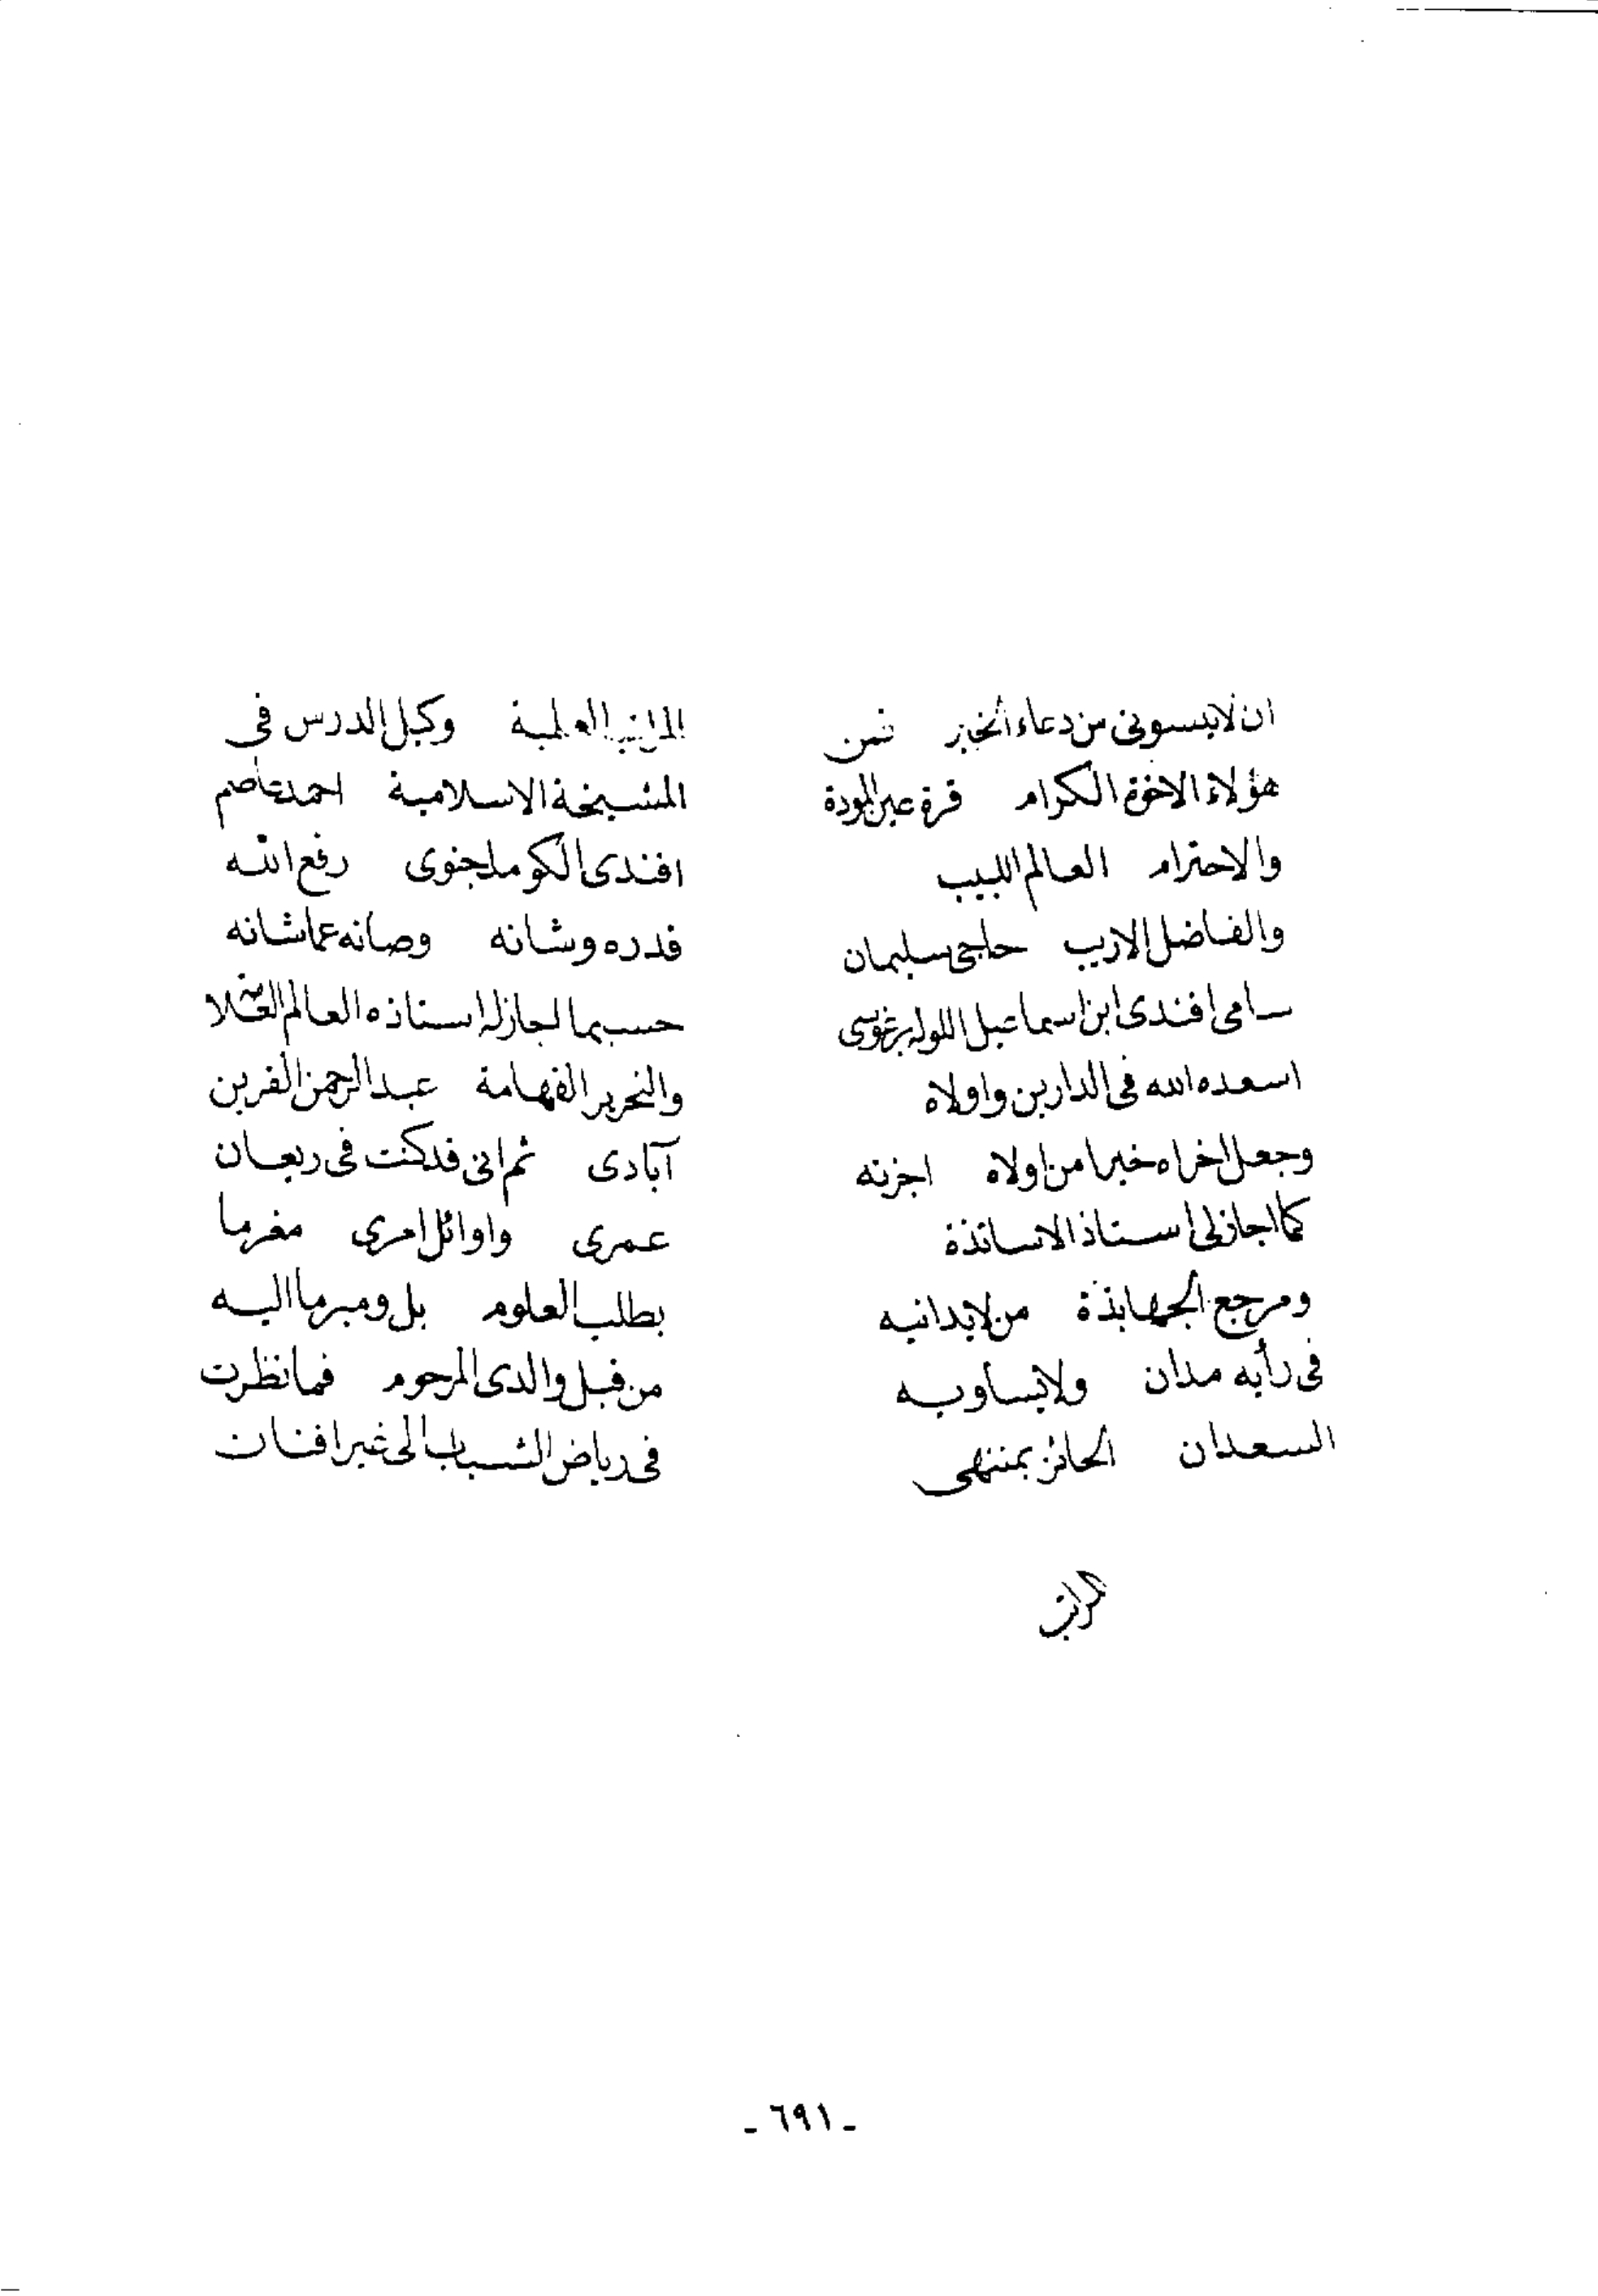 ان لاينسونى من دعاء الخير فمن
هؤلاء الاخوة الكرام قرة عين المودة
والاحترام العالم اللبيب
والفاضل الاريب حاجى سليمان
سامى افندى ابن اسماعيل اللوله برغوسى
اسعده الله فى الدارين واولاه
وجعل اخراه خيرا من اولاه اجزته
كما اجاز لى استاذ الاساتذة
ومرجع الجهابذة من لايدانيه
فى رأيه مدان ولايساويه
السعدان الحائز بمنتهى
المراتب
المراتب العلمية وكيل الدرس فى
المشيخة الاسلامية احمد عاصم
افندى الكوملجنوى رفع الله
قدره وشانه وصانه عما شانه
حسبما اجاز له استاذه العالم العلا
والنحرير الفهامة عبد الرحمن القرين
آبادى ثم انى قد كنت فى ريعان
عمرى واوائل امرى مغرما
بطلب العلوم بل ومبرما اليه
من قبل والدى المرحوم فما نظرت
فى رياض الشباب الى غير افنان
- ٦٩١ -